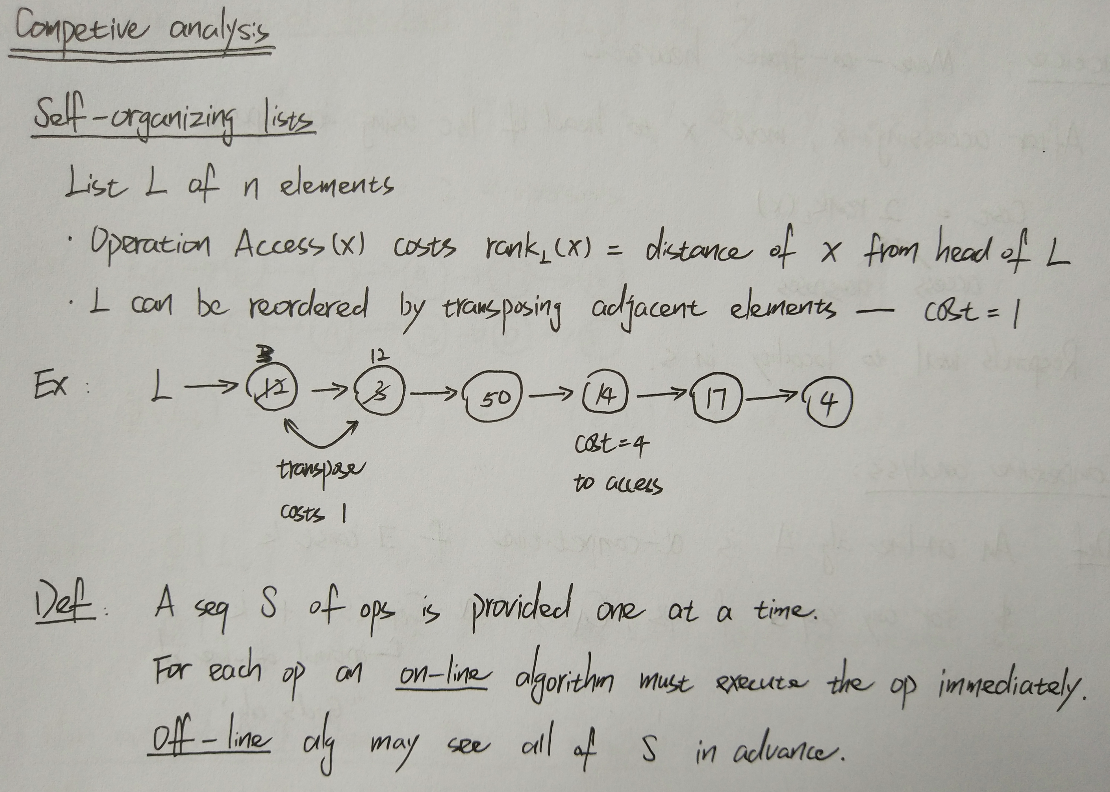 Competive analysis
Self-organizing lists
List L of n elements
· Operation Access(x) costs rank_L(x) = distance of x from head of L
· L can be reordered by transposing adjacent elements — cost = 1
3 12
Ex: L → 12 → 3 → 50 → 14 → 17 → 4
transpose
costs 1
cost=4
to access
Def: A seq S of ops is provided one at a time.
For each op an on-line algorithm must execute the op immediately.
Off-line alg may see all of S in advance.